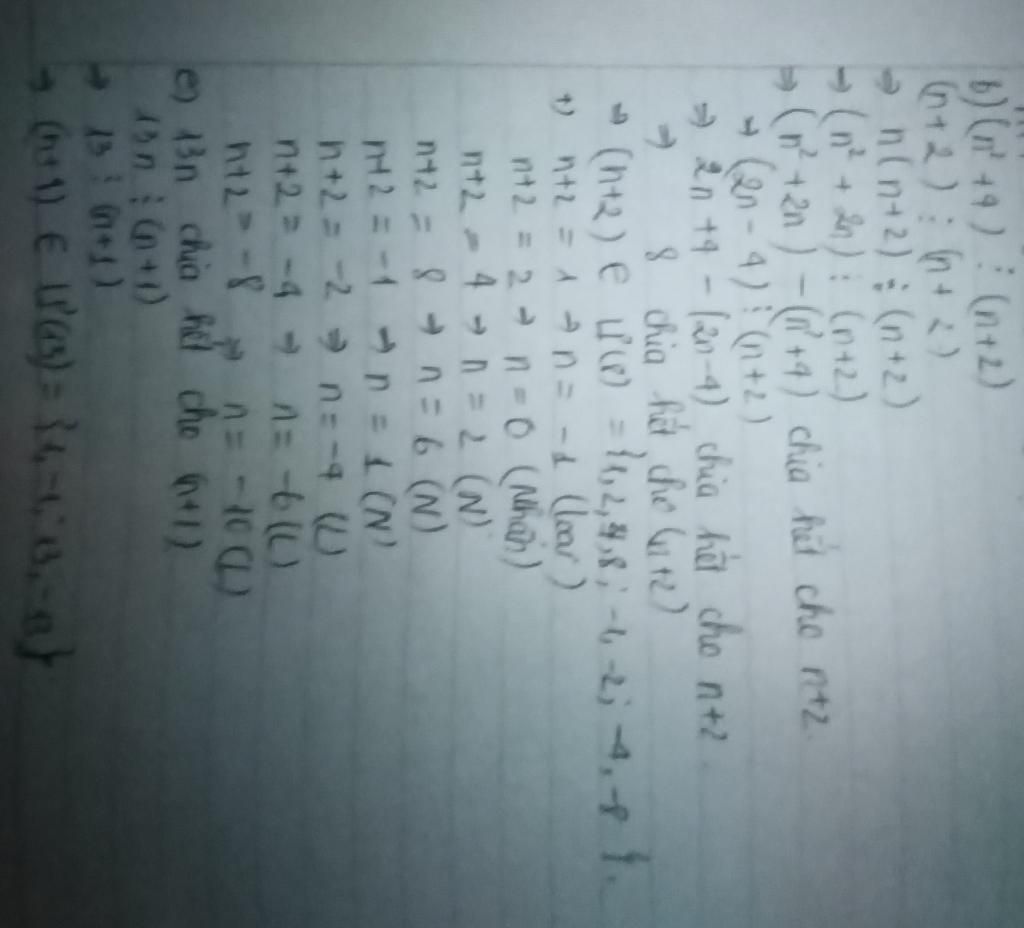 b) (n² + 4) ⋮ (n+2)
(n+2) ⋮ (n+2)
→ n(n+2) ⋮ (n+2)
→ (n² + 2n) ⋮ (n+2)
→ (n² + 2n) - (n² + 4) chia hết cho n+2.
→ (2n - 4) ⋮ (n+2)
→ 2n + 4 - (2n-4) chia hết cho n+2
→ 8 chia hết cho (n+2)
→ (n+2) ∈ Ư(8) = {1, 2, 4, 8; -1, -2; -4, -8}.
+) n+2 = 1 → n = -1 (loại)
n+2 = 2 → n = 0 (Nhận)
n+2 = 4 → n = 2 (N)
n+2 = 8 → n = 6 (N)
n+2 = -1 → n = 1 (N)
n+2 = -2 → n = -4 (L)
n+2 = -4 → n = -6 (L)
n+2 = -8 → n = -10 (L)
c) 13n chia hết cho (n+1)
13n ⋮ (n+1)
→ 13 ⋮ (n+1)
→ (n+1) ∈ Ư(13) = {1, -1; 13, -13}